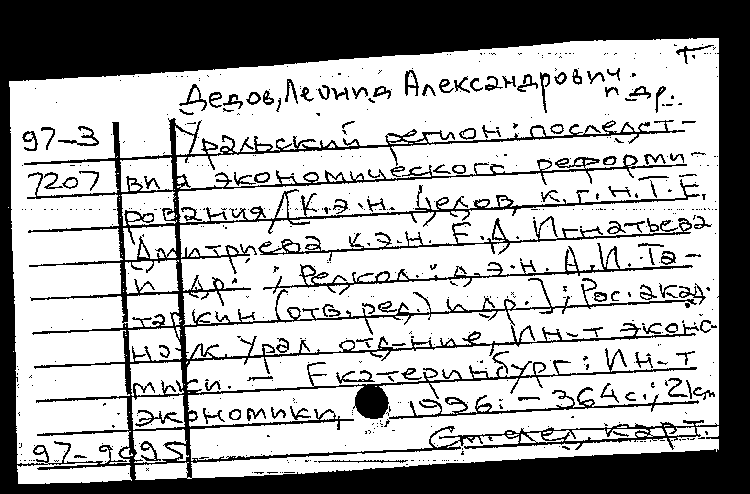 т.
Дедов, Леонид Александрович.
и др.
97-3 Уральский регион: последст-
7207 вия экономического реформи-
рования / [К.э.н. Дедов, к.г.н. Т.Е.
Дмитриева, к.э.н. Е.Д. Игнатьева
и др. ; Редкол.: д.э.н. А.И. Та-
таркин (отв. ред.) и др.]; Рос. акад.
наук. Урал. отд-ние, Ин-т эконо
мики. - Екатеринбург: Ин-т
экономики, 1996. - 364 с.; 21 см
97-9095 карт.